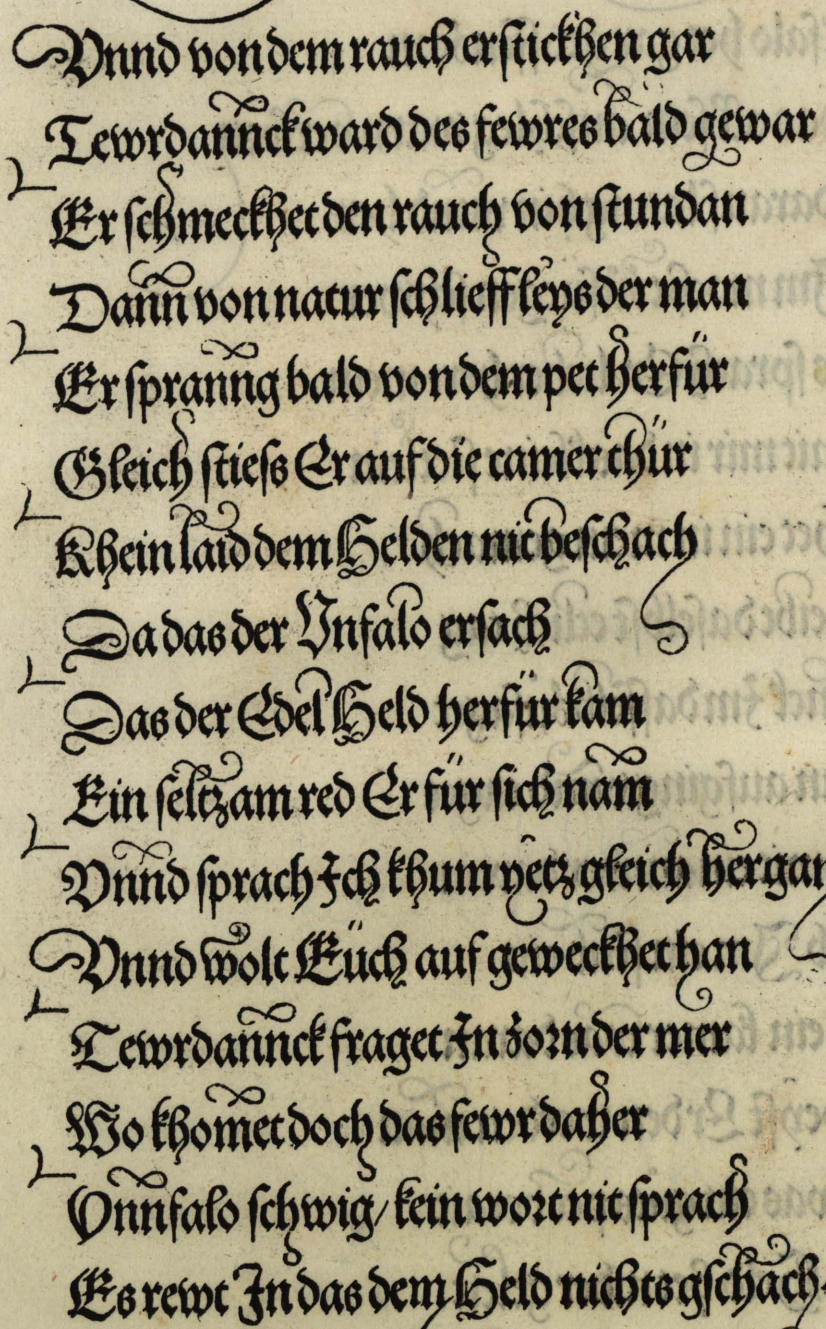 Vnnd von dem rauch erstickhen gar
Tewrdannck ward des fewres bald gewar
Er schmeckhet den rauch von stundan
Dann von natur schlieff leys der man
Er spranng bald von dem pet herfür
Gleich stiess Er auf die camer thür
Khein laid dem Helden nit beschach
Da das der Vnfalo ersach
Das der Edel Held herfür kam
Ein seltzam red Er für sich nam
Vnnd sprach Ich khum yetz gleich hergan
Vnnd wolt Eüch auf geweckhet han
Tewrdannck fraget In zorn der mer
Wo khomet doch das fewr daher
Vnnfalo schwig/ kein wort nit sprach
Es rewt In das dem Held nichts gschach.